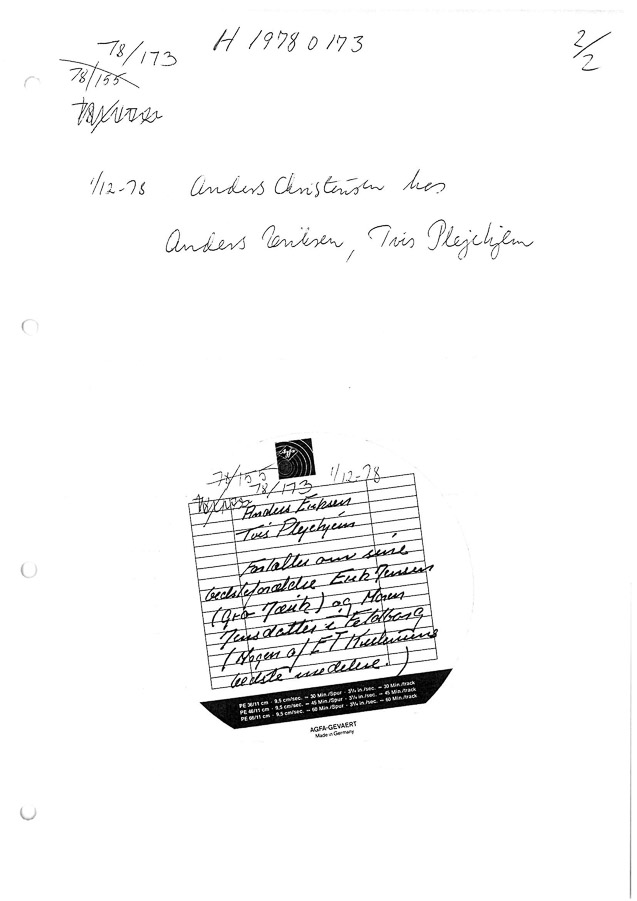 78/173 H 1978 0 173 2/2
78/155
1/12-78 Anders Christensen hos
Anders Eriksen, Tvis Plejehjem
Agfa
78/155 1/12-78
78/173
Anders Eriksen
Tvis Plejehjem
Fortæller om sine
bedsteforældre Erik Jensen
(Gra' ) og Maren
Jensdatter i Feldborg
(Nogen af ET Kristensens
bedste meddelere.)
PE 36/11 cm - 9,5 cm/sec. = 30 Min./Spur - 3¾ in./sec. = 30 Min./track
PE 46/11 cm - 9,5 cm/sec. = 45 Min./Spur - 3¾ in./sec. = 45 Min./track
PE 66/11 cm - 9,5 cm/sec. = 60 Min./Spur - 3¾ in./sec. = 60 Min./track
AGFA-GEVAERT
Made in Germany